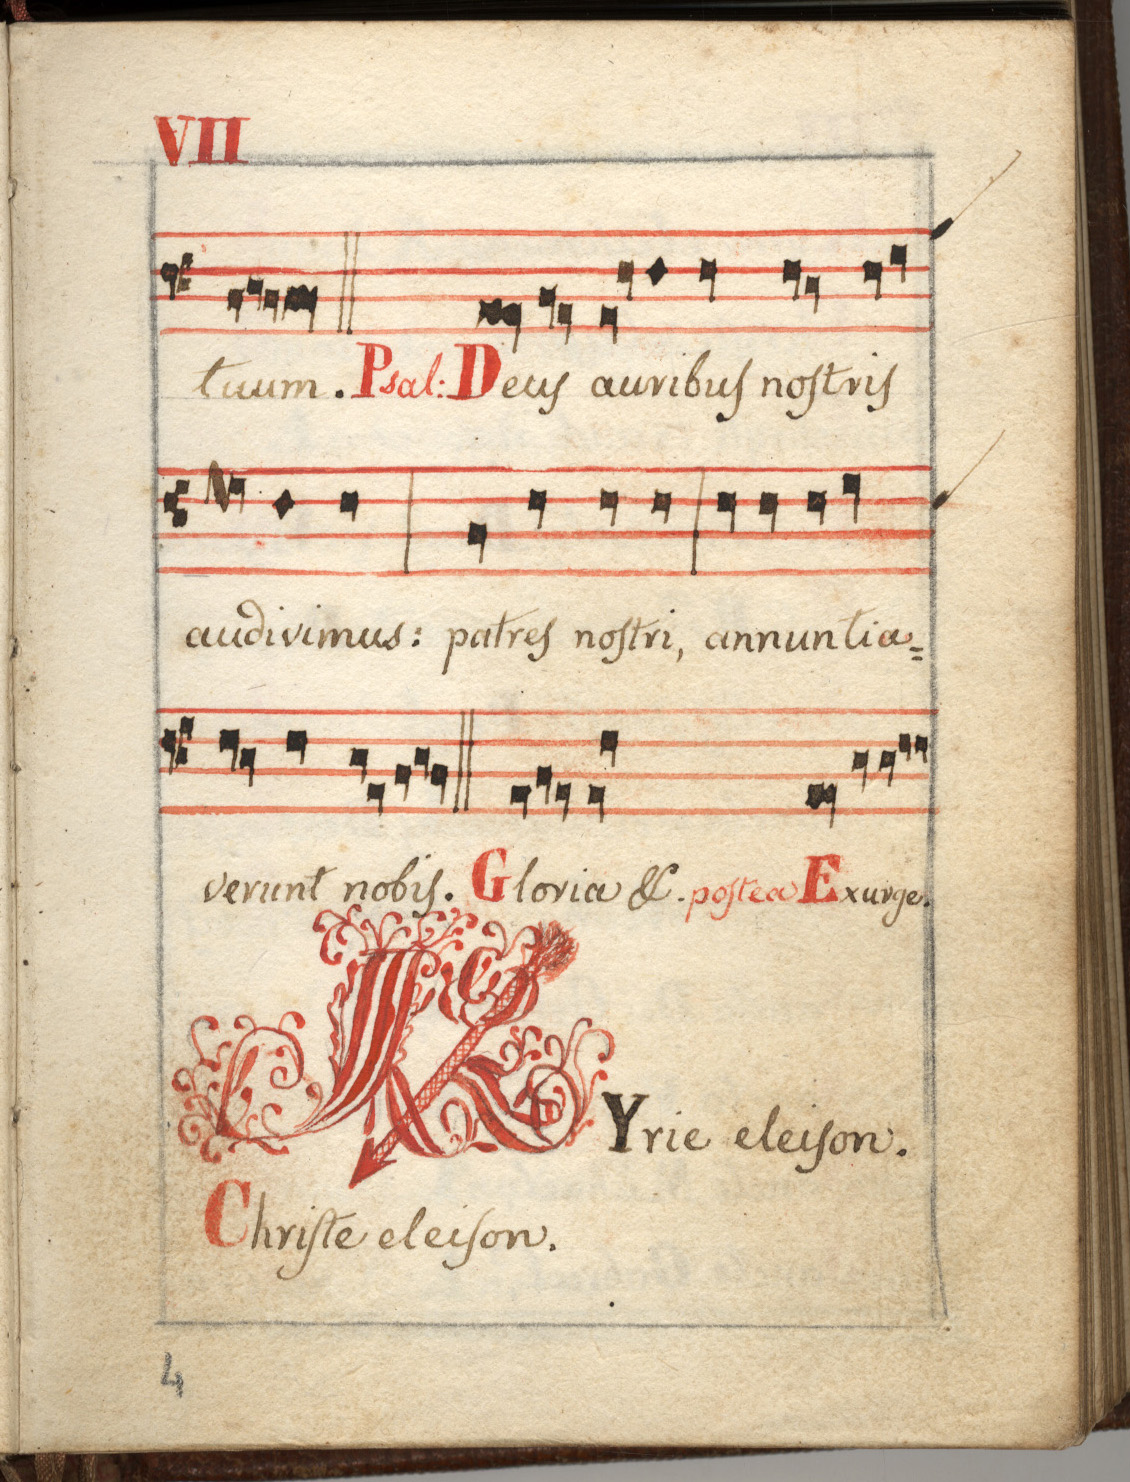 VII
tuum. Psal: Deus auribus nostris
audivimus: patres nostri, annuntia=
verunt nobis. Gloria &. postea Exurge.
KYrie eleison.
Christe eleison.
4